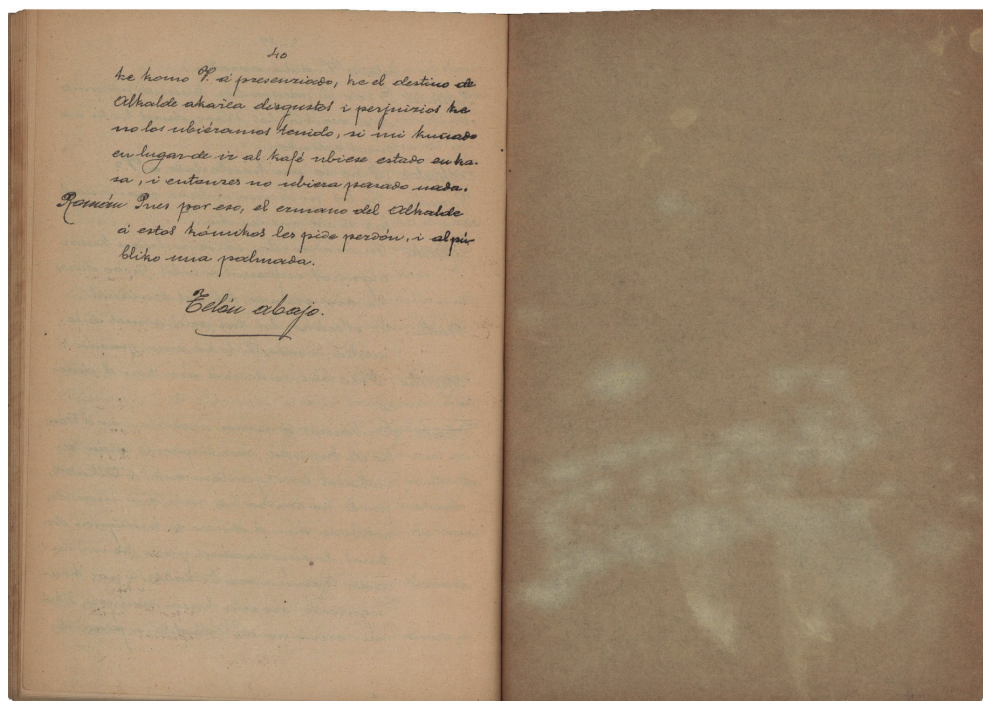 40
ke komo V. á presenziado, ke el destino de
Alkalde akarea disgustos i perjuizios ke
no los ubiéramos tenido, si mi kuñado
en lugar de ir al kafé ubiese estado en ka-
sa, i entonzes no ubiera pasado nada.
Román Pues por eso, el ermano del Alkalde
á estos kómikos les pide perdón, i al pú-
bliko una palmada.
Telón abajo.